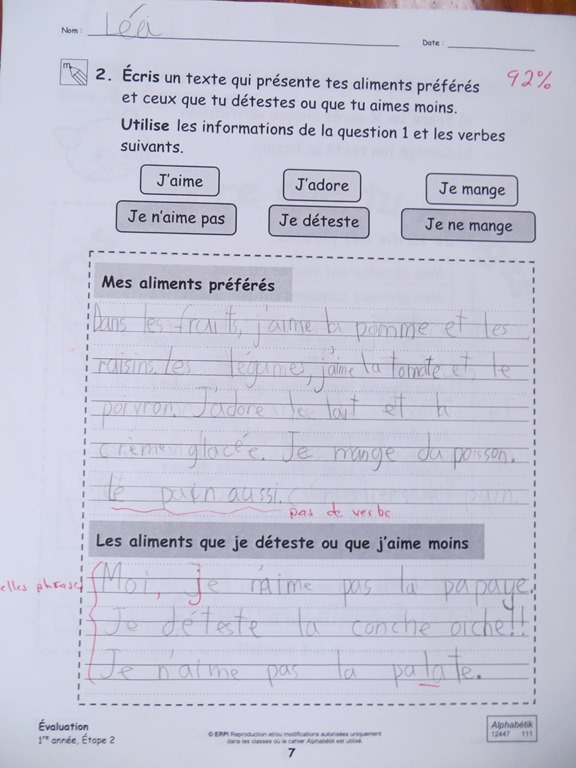 Nom : Léa
Date :
92%
2. Écris un texte qui présente tes aliments préférés
et ceux que tu détestes ou que tu aimes moins.
Utilise les informations de la question 1 et les verbes
suivants.
J'aime J'adore Je mange
Je n'aime pas Je déteste Je ne mange
Mes aliments préférés
Dans les fruits, j'aime la pomme et les
raisins. Les légumes, j'aime la tomate et le
poivron. J'adore le lait et la
crème glacée. Je mange du poisson.
le pain aussi.
pas de verbe
Les aliments que je déteste ou que j'aime moins
elles phrases
Moi, je n'aime pas la papaye.
Je déteste la conche oiche!!
Je n'aime pas la palate.
Évaluation
1re année, Étape 2
© ERPI Reproduction et/ou modifications autorisées uniquement
dans les classes où le cahier Alphabétik est utilisé.
Alphabétik
12447 111
7